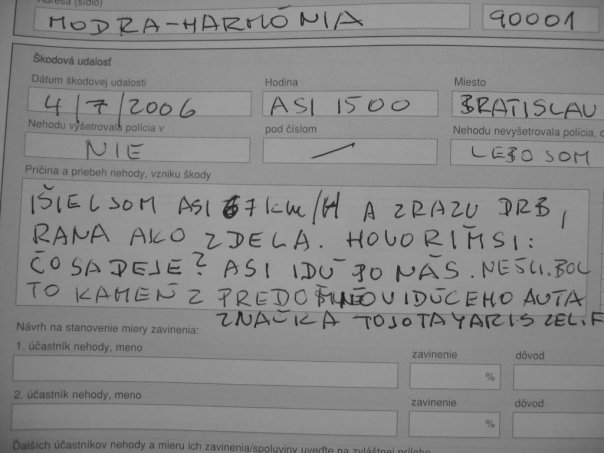 Adresa (sídlo)
MODRA-HARMÓNIA 90001
Škodová udalosť
Dátum škodovej udalosti Hodina Miesto
4/7/2006 ASI 1500 BRATISLAV
Nehodu vyšetrovala polícia v pod číslom Nehodu nevyšetrovala polícia,
NIE / LEBO SOM
Príčina a priebeh nehody, vzniku škody
IŠIEL SOM ASI 67 km/H A ZRAZU DRB,
RANA AKO Z DELA. HOVORÍM SI:
ČO SA DEJE? ASI IDÚ PO NÁS. NEŠLI. BOL
TO KAMEŇ Z PREDO VIDÚCEHO AUTA
ZNAČKA TOJOTA YARIS ZEL. F
Návrh na stanovenie miery zavinenia:
1. účastník nehody, meno zavinenie dôvod
%
2. účastník nehody, meno zavinenie dôvod
%
Ďalších účastníkov nehody a mieru ich zavinenia/spoluviny uveďte na zvláštnej prílohe